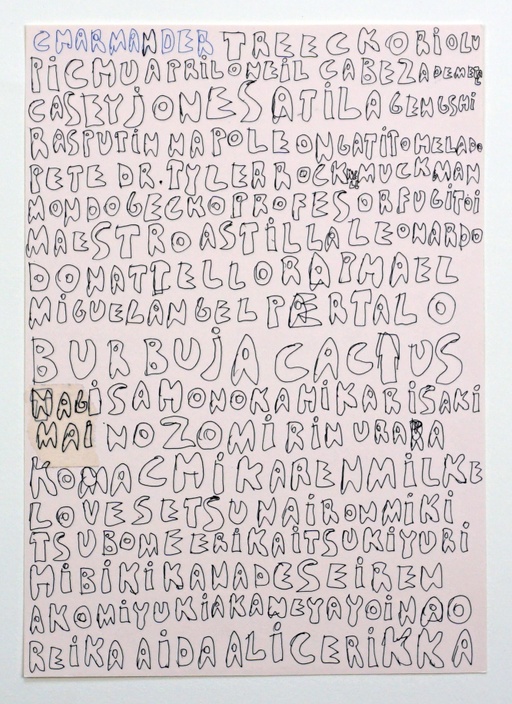 CHARMANDER TREECKO RIOLU
PICHU APRIL ONEIL CABEZA DE METRO
CASEY JONES ATILA GENGSHI
RASPUTIN NAPOLEON GATITO HELADO
PETE DR. TYLER ROCK MUCKMAN
MONDO GECKO PROFESOR FUGITOI
MAESTRO ASTILLA LEONARDO
DONATTELLO RAPHAEL
MIGUEL ANGEL PERTALO
BURBUJA CACTUS
NAGISA HONOKA HIKARI SAKI
MAI NOZOMI RIN URARA
KOMACHI KAREN MILKE
LOVE SETSUNA IRON MIKI
TSUBOME ERIKA ITSUKI YURI
HIBIKI KANADE SEIREN
AKO MIYUKI AKANE YAYOI NAO
REIKA AIDA ALICE RIKKA